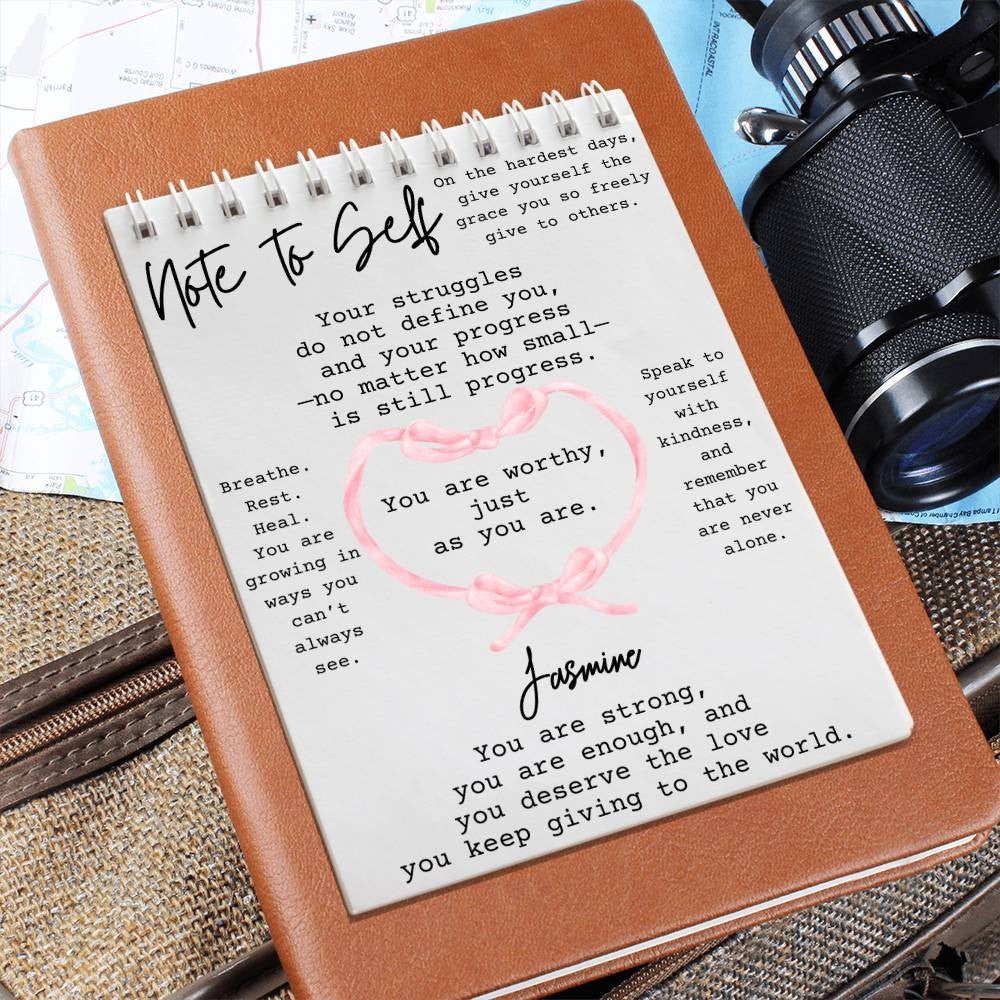 Note to Self
On the hardest days,
give yourself the
grace you so freely
give to others.
Your struggles
do not define you,
and your progress
—no matter how small—
is still progress.
Speak to
yourself
with
kindness,
and
remember
that you
are never
alone.
Breathe.
Rest.
Heal.
You are
growing in
ways you
can't
always
see.
You are worthy,
just
as you are.
Jasmine
You are strong,
you are enough, and
you deserve the love
you keep giving to the world.
Airport
Ranch
Dixie Say
Golf Course
Woodlands G C
Parrish
Buffalo Creek
Golf Course
41
INTRACOASTAL
Tampa Bay Chamber of